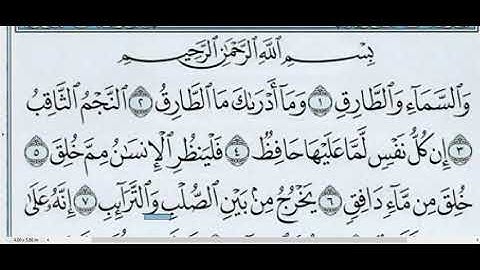 بِسْمِ ٱللَّهِ ٱلرَّحْمَٰنِ ٱلرَّحِيمِ
وَٱلسَّمَآءِ وَٱلطَّارِقِ ١ وَمَآ أَدْرَىٰكَ مَا ٱلطَّارِقُ ٢ ٱلنَّجْمُ ٱلثَّاقِبُ
٣ إِن كُلُّ نَفْسٍ لَّمَّا عَلَيْهَا حَافِظٌ ٤ فَلْيَنظُرِ ٱلْإِنسَٰنُ مِمَّ خُلِقَ ٥
خُلِقَ مِن مَّآءٍ دَافِقٍ ٦ يَخْرُجُ مِنۢ بَيْنِ ٱلصُّلْبِ وَٱلتَّرَآئِبِ ٧ إِنَّهُۥ عَلَىٰ